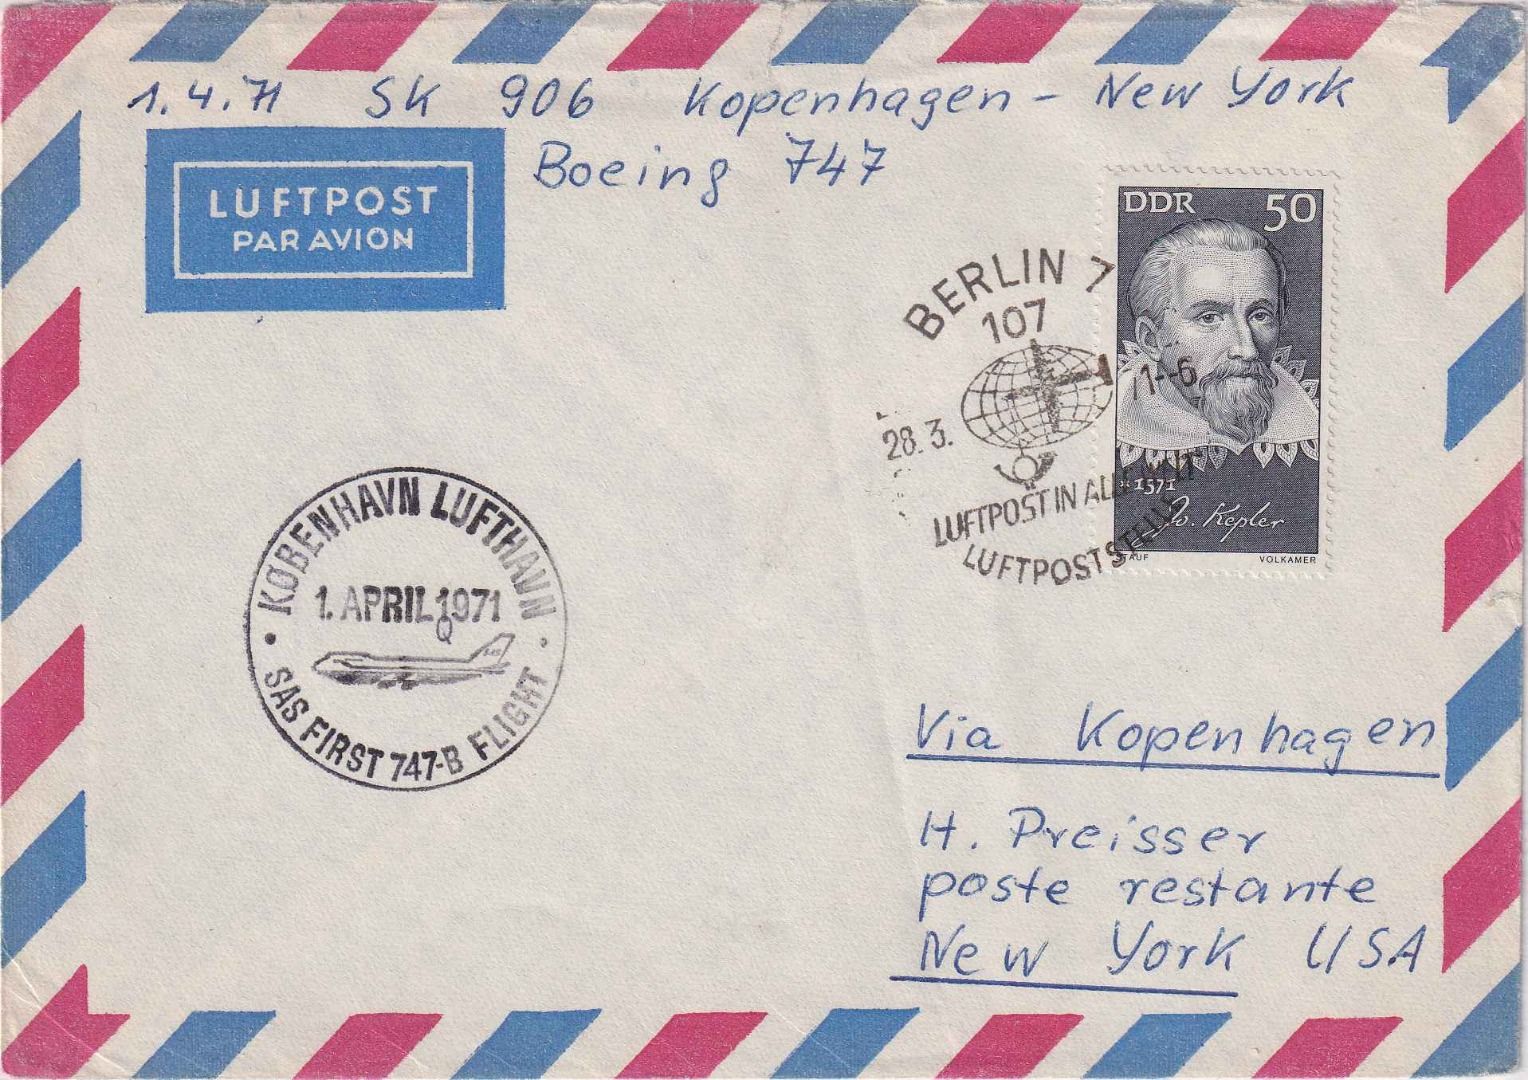 1.4.71 SK 906 Kopenhagen - New York
Boeing 747
LUFTPOST
PAR AVION
DDR 50
BERLIN 7
107
28.3.71--6
LUFTPOST IN ALLE WELT
LUFTPOSTSTELLE
*1571
Jo. Kepler
STAUF VOLKAMER
KØBENHAVN LUFTHAVN
1. APRIL 1971
SAS FIRST 747-B FLIGHT
Via Kopenhagen
H. Preisser
poste restante
New York USA